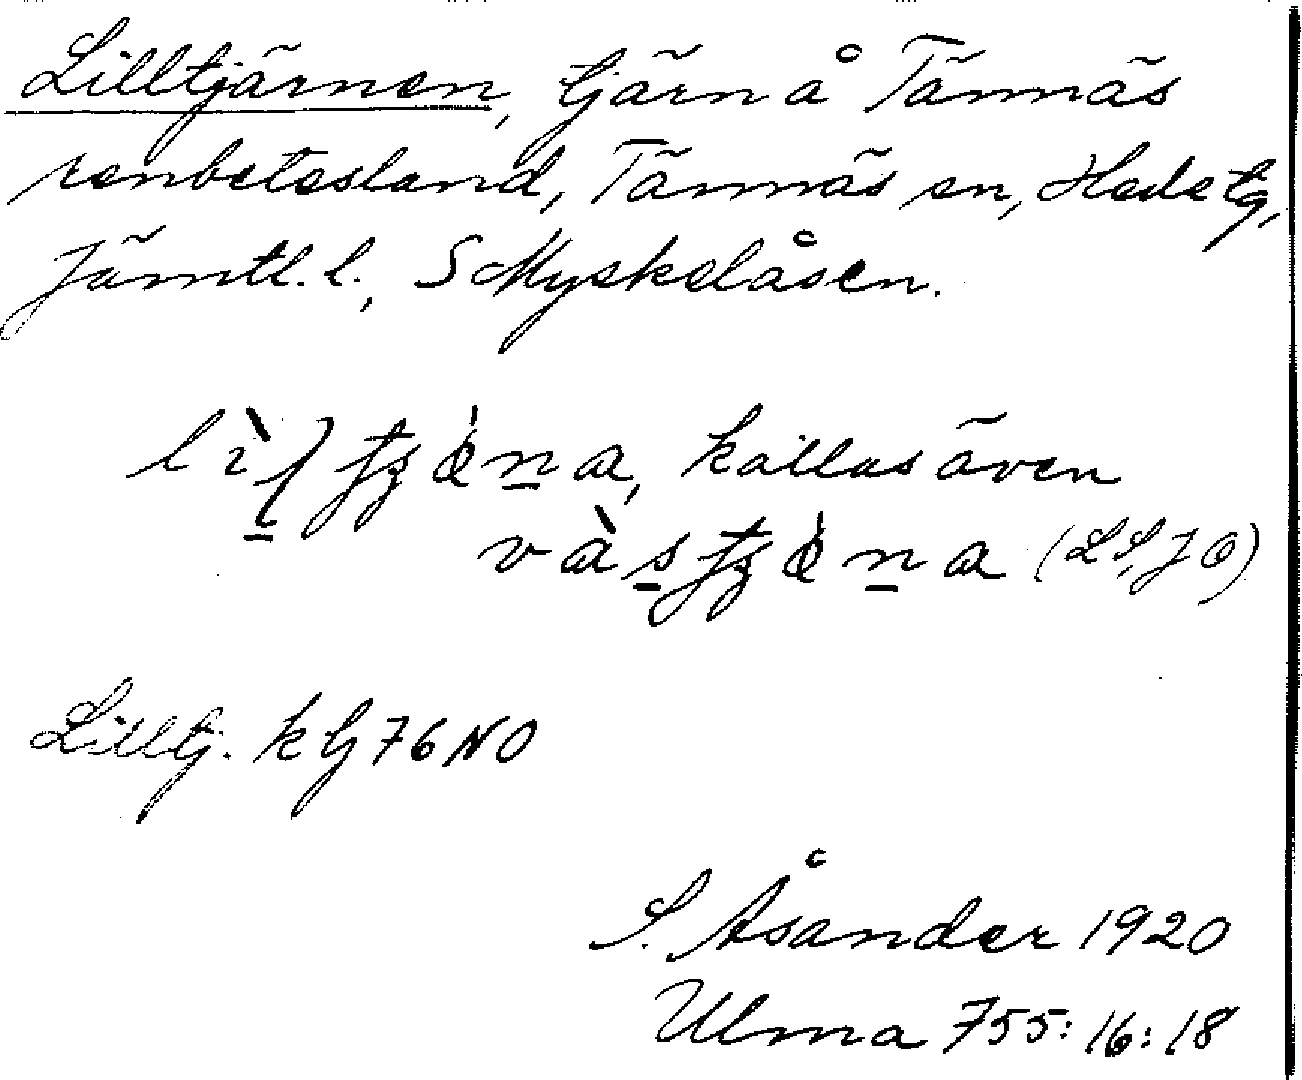 Lilltjärnen, tjärn å Tännäs
renbetesland, Tännäs sn, Hede tg,
Jämtl. l., S Myskelåsen.
kallas även
(LS, JO)
Lilltj. k bj 76 NO
S. Åsander 1920
Ulma 755:16:18